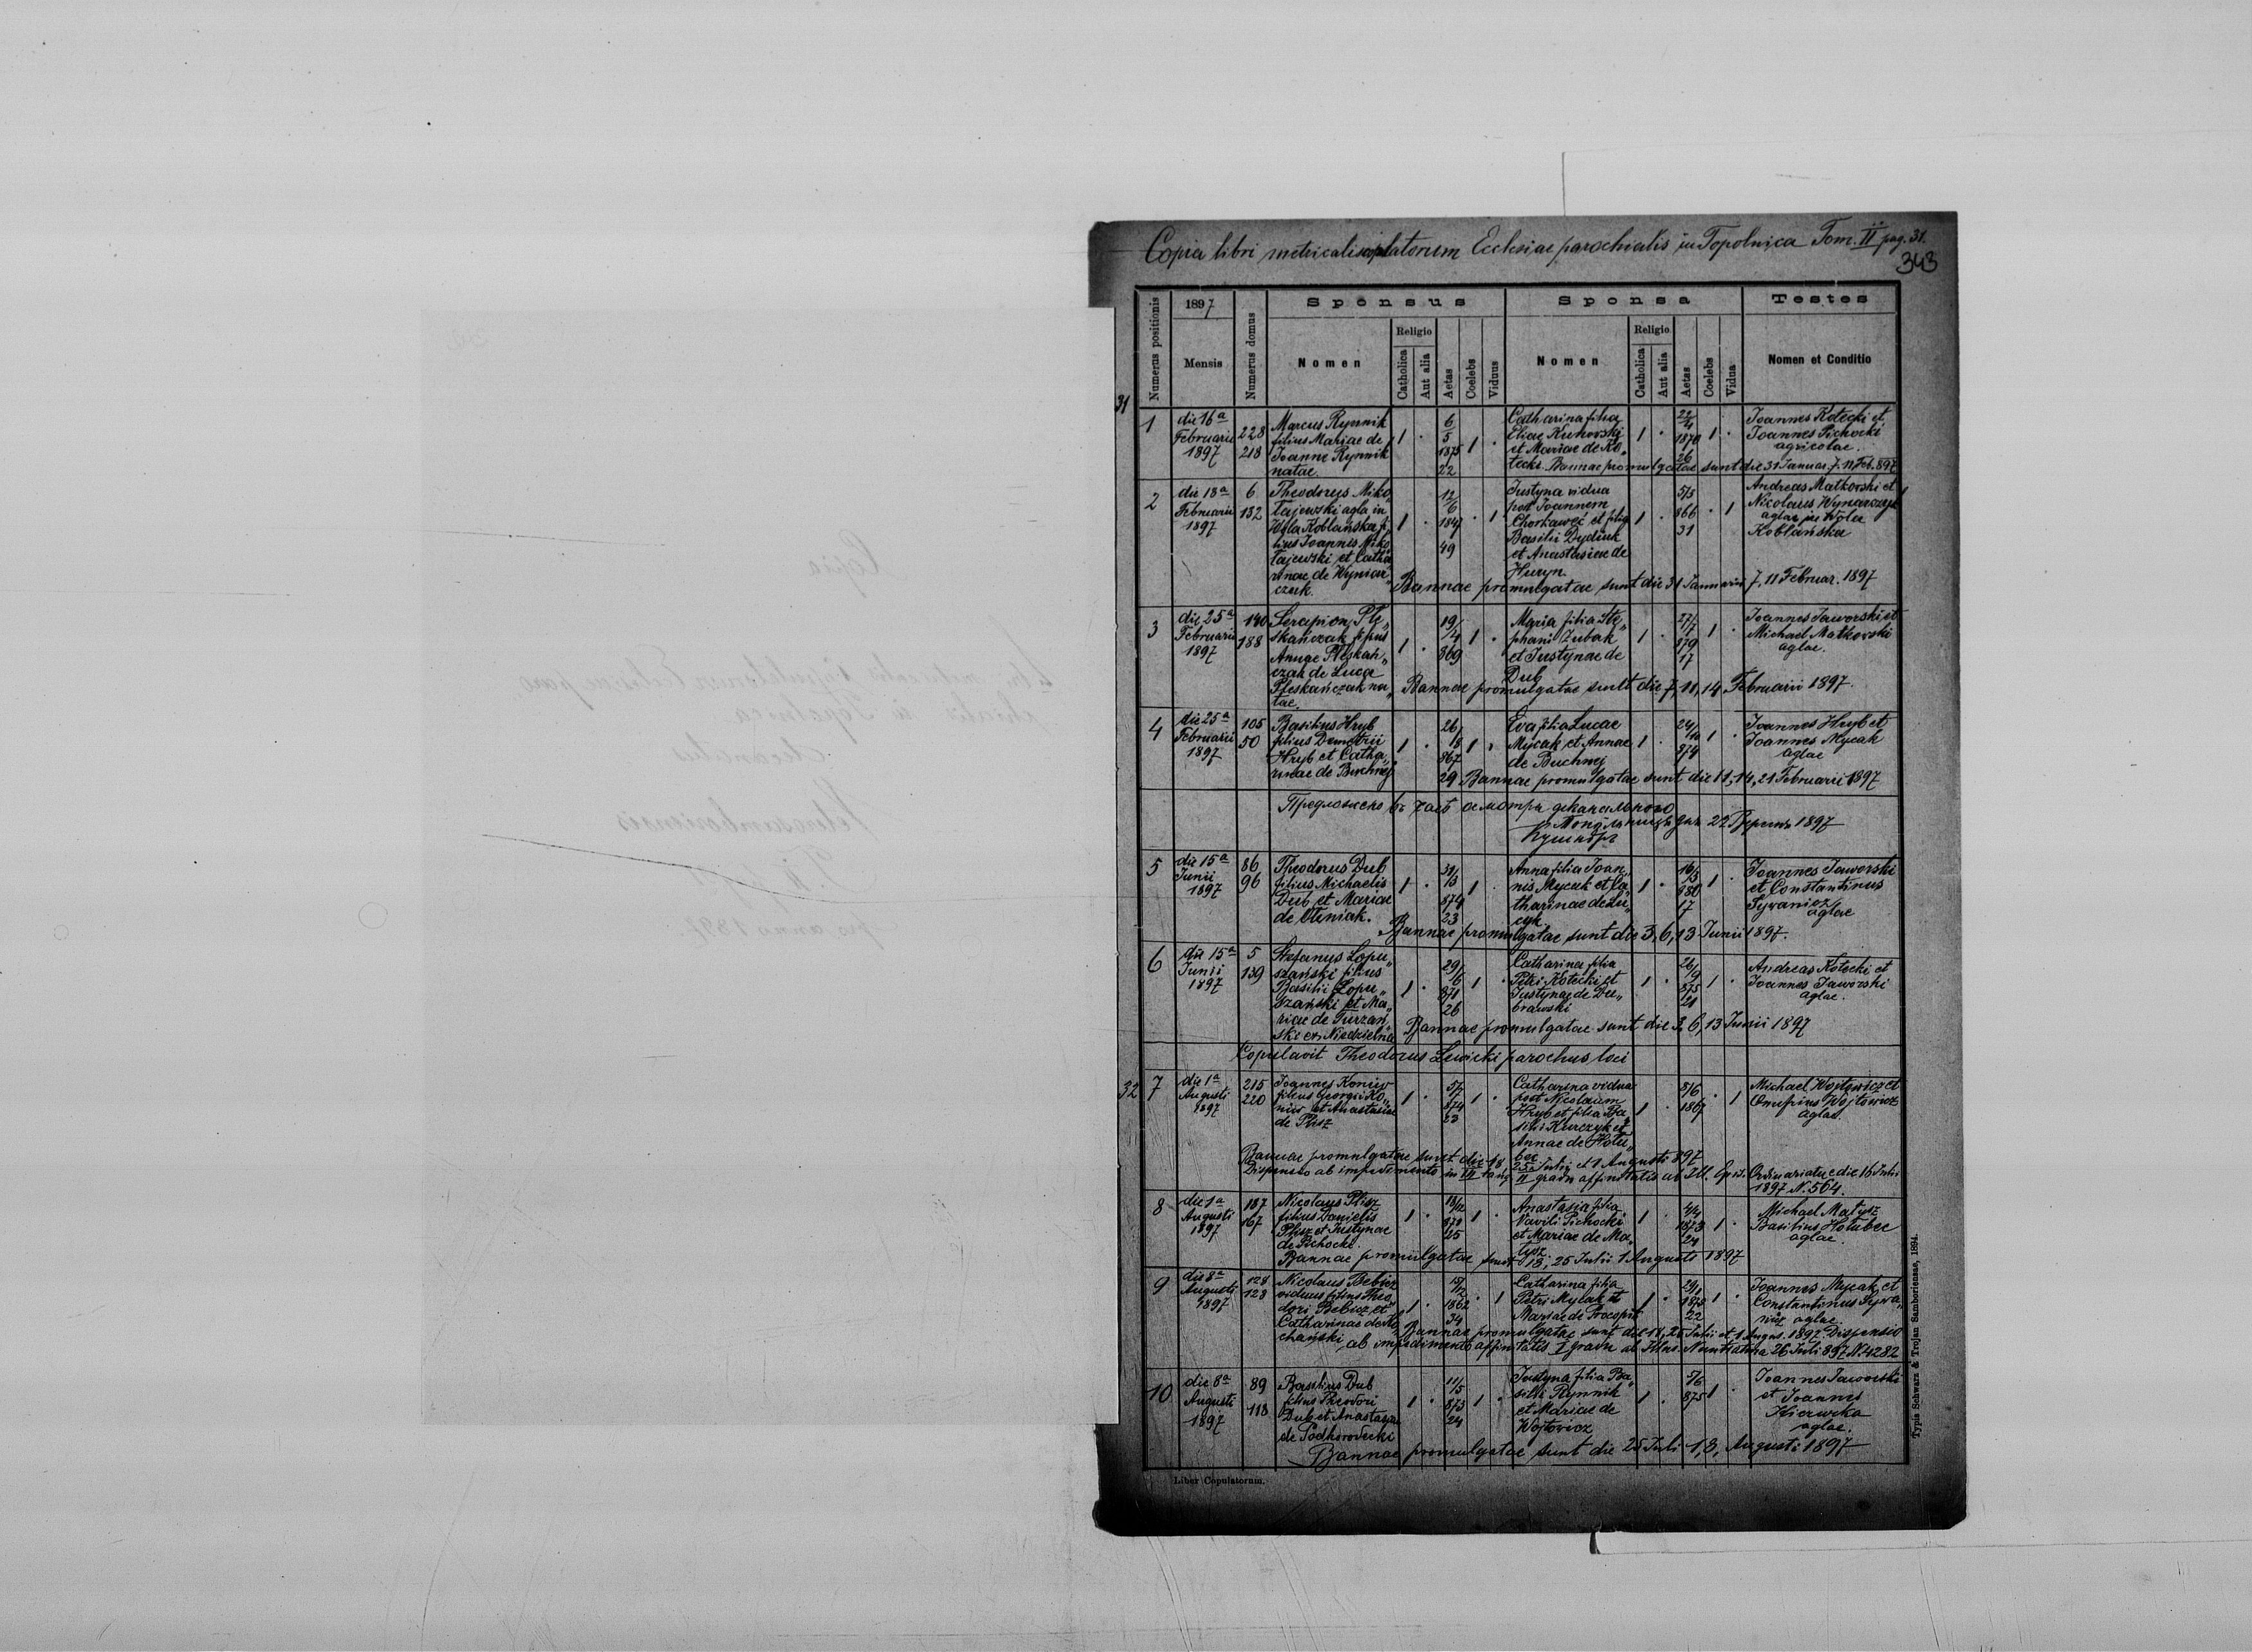 Copia libri metricalis copulatorum Ecclesiae parochialis in Topolnica Tom. II pag. 31.
343
Numerus positionis
1897
Mensis
Numerus domus
Sponsus
Nomen
Religio
Catholica
Aut alia
Aetas
Coelebs
Viduus
Sponsa
Nomen
Religio
Catholica
Aut alia
Aetas
Coelebs
Vidua
Testes
Nomen et Conditio
31
1
die 16a
Februarii
1897
228
218
Marcus Rynnik
filius Mariae de
Joanne Rynnik
natae
1 .
6/5
1875
22
1 .
Catharina filia
Eliae Kuhowski
et Mariae de Ko„
tecki
1 .
22/4
1870
26
1 .
Joannes Kotecki et
Joannes Pichocki
agricolae.
Bannae promulgatae sunt die 31 Januar. 7. 11 Feb. 897
2
die 18a
Februarii
1897
6
132
Theodorus Miko„
łajewski agla in
Wola Koblańska fi„
lius Joannis Miko„
łajewski et Catha„
rinae de Wyniar„
czuk.
1 .
12/6
1847
49
. 1
Justyna vidua
post Joannem
Chorkaweć et filia
Basilii Dydiuk
et Anastasiae de
Huryn
1 .
5/3
866
31
. 1
Andreas Matkowski et
Nicolaus Wyniarczyk
aglae in Wola
Koblańska
Bannae promulgatae sunt die 31 Januarii 7. 11 Februar. 1897
3
die 25a
Februarii
1897
140
188
Serapion Ple„
skańczak filius
Annae Pleskań„
czak de Luca
Pleskańczak na„
tae.
1 .
19/4
869
1 .
Maria filia Ste„
phani Zubak
et Justynae de
Dub
1 .
27/7
879
17
1 .
Joannes Jaworski et
Michael Matkowski
aglae.
Bannae promulgatae sunt die 7, 11, 14 Februarii 1897.
4
die 25a
Februarii
1897
105
50
Basilius Hryb
filius Demetrii
Hryb et Catha„
rinae de Buchnej
1 .
26/
18
867
29
1 .
Eva filia Lucae
Mycak et Annae
de Buchnej
1 .
24/10
874
1 .
Joannes Hryb et
Joannes Mycak
aglae
Bannae promulgatae sunt die 11, 14, 21 Februarii 1897
1897
5
die 15a
Junii
1897
86
96
Theodorus Dub
filius Michaelis
Dub et Mariae
de Oliniak.
1 .
31/3
874
23
1 .
Anna filia Joan„
nis Mycak et Ca„
tharinae de Lu„
cyk
1 .
16/3
880
17
1 .
Joannes Jaworski
et Constantinus
Sywanicz
aglae
Bannae promulgatae sunt die 3, 6, 13 Junii 1897.
6
die 15a
Junii
1897
5
139
Stefanus Łopu„
szański filius
Basilii Łopu„
szański et Ma„
riae de Turzań„
ski ex Niedzielna
1 .
29/6
871
26
1 .
Catharina filia
Petri Kotecki et
Justynae de Du„
brawski
1 .
26/9
875
21
1 .
Andreas Kotecki et
Joannes Jaworski
aglae.
Bannae promulgatae sunt die 3, 6, 13 Junii 1897
Copulavit Theodorus Lewicki parochus loci
32
7
die 1a
Augusti
1897
215
220
Joannes Koniw
filius Georgii Ko„
niw et Anastasiae
de Plisz
1 .
5/7
874
23
1 .
Catharina vidua
post Nicolaum
Hryb et filia Ba„
silii Kurczyk et
Annae de Hołu„
bec
1 .
8/6
1867
. 1
Michael Wojtowicz et
Onufrius Wojtowicz
aglae.
Bannae promulgatae sunt die 18, 25 Julii et 1 Augusti 897
Dispensio ab impedimento in III tang. II gradu affinitatis ab Ill. Epis. Ordinariatu e die 16 Julii
1897 N. 564.
8
die 1a
Augusti
1897
187
167
Nicolaus Plisz
filius Danielis
Plisz et Justynae
de Pichocki.
1 .
18/12
872
25
1 .
Anastasia filia
Vavili Pichocki
et Mariae de Ma„
tysz
1 .
4/4
1873
24
1 .
Michael Matysz
Basilius Hołubec
aglae.
Bannae promulgatae sunt 18, 25 Julii 1 Augusti 1897
9
die 8a
Augusti
1897
128
128
Nicolaus Bebicz
viduus filius Theo„
dori Bebicz et
Catharinae de
chański
1 .
1862
34
. 1
Catharina filia
Petri Mycak et
Mariae de Procopit
1 .
29/1
1875
22
1 .
Joannes Mycak et
Constantinus Sywa„
nicz aglae.
Bannae promulgatae sunt die 18, 25 Julii et 1 August. 1897 Dispensio
ab impedimento affinitatis I gradu ab Illus. Nuntiatura 26 Juli 897 N. 4282
10
die 8a
Augusti
1897
89
118
Basilius Dub
filius Theodori
Dub et Anastasiae
de Podhorodecki
1 .
11/5
873
24
1 .
Justyna filia Ba„
silii Rynnik
et Mariae de
Wojtowicz
1 .
5/6
875
1 .
Joannes Jaworski
et Joannes
Hiczwka
aglae.
Bannae promulgatae sunt die 25 Juli 1, 8, Augusti 1897
Liber Copulatorum.
Typis Schwarz & Trojan Samboriensae, 1894.